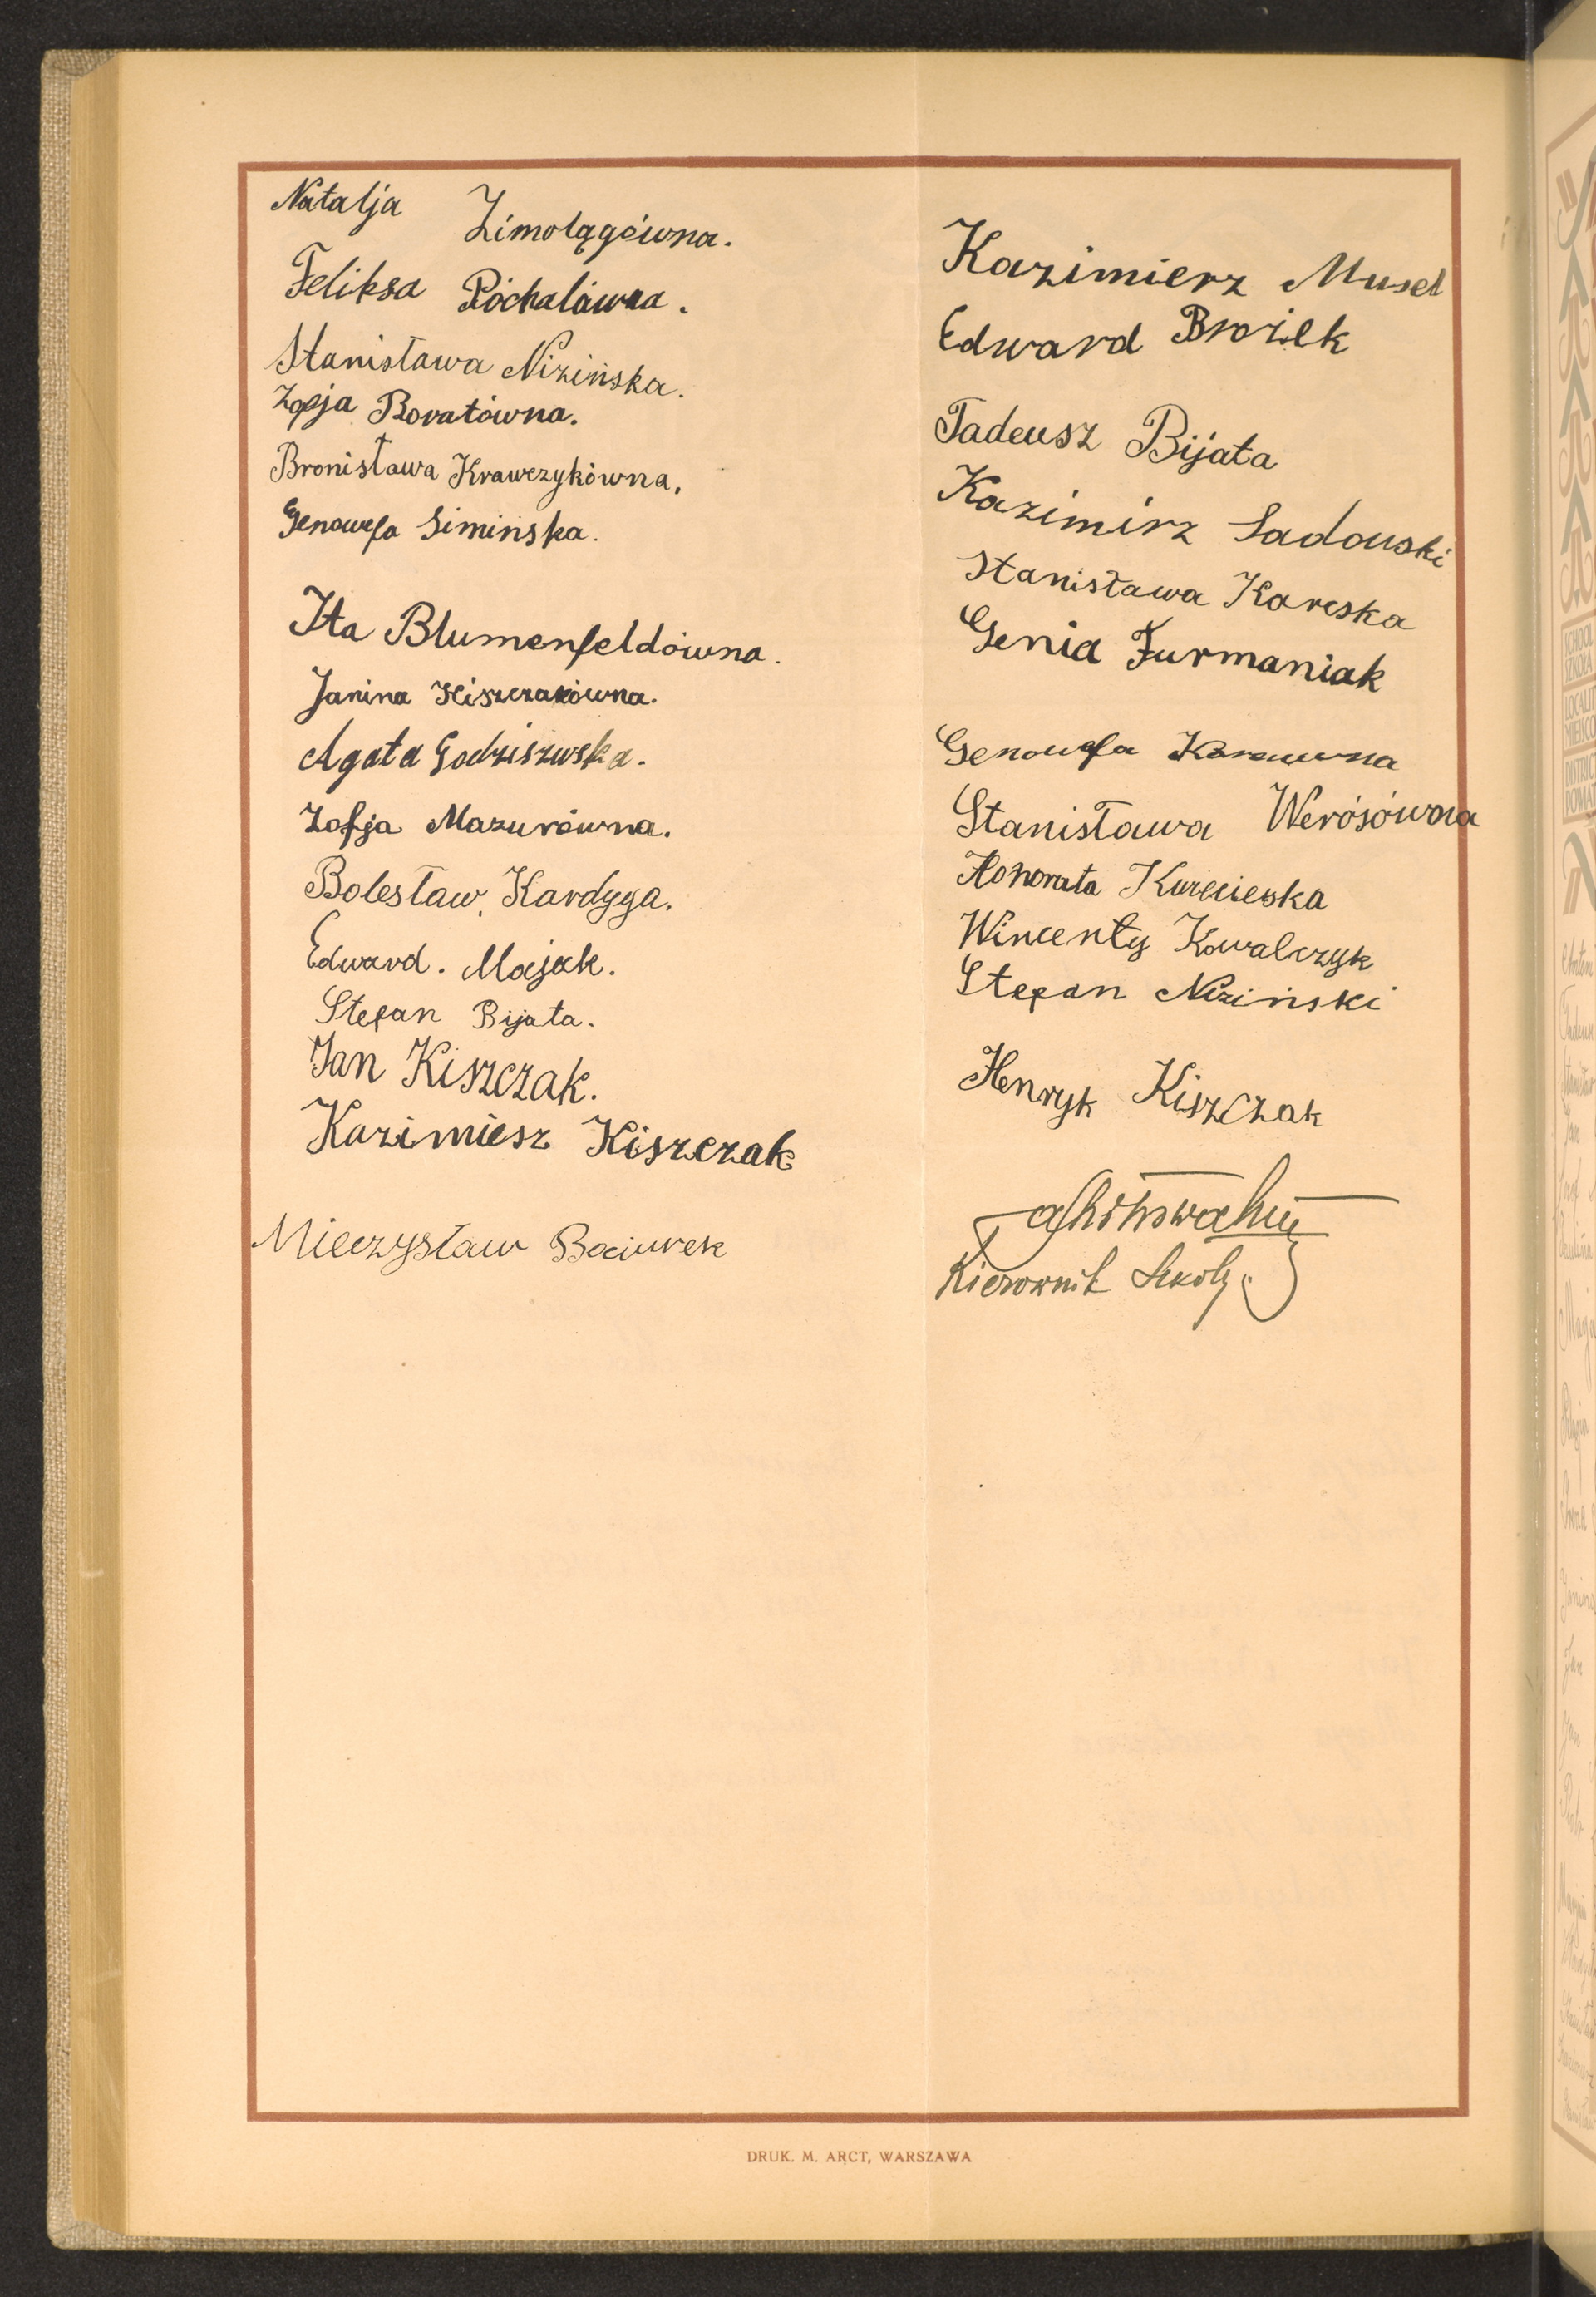 Natalja Zimolągówna.
Feliksa Póchalówna.
Stanisława Nizińska.
Zofja Boratówna.
Bronisława Krawczykówna.
Genowefa Simińska.
Ita Blumenfeldówna.
Janina Kiszczakówna.
Agata Godziszwska.
Zofja Mazurówna.
Bolesław Kardyga.
Edward. Majak.
Stefan Bijata.
Jan Kiszczak.
Kazimiesz Kiszczak
Mieczysław Bociurek
Kazimierz Museł
Edward Brożek
Tadeusz Bijata
Kazimirz Sadowski
Stanisława Kareska
Genia Furmaniak
Genowefa
Stanisława Werósówna
Honorata
Wincenty Kowalczyk
Stefan Niziński
Henryk Kiszczak
Kierownik Szkoły.
DRUK. M. ARCT, WARSZAWA